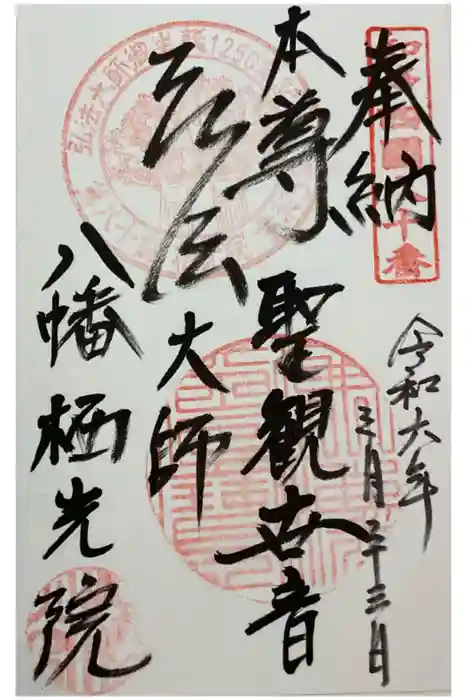 知多四国八十番
奉納
令和六年
三月二十三日
本尊
聖観世音
弘法大師
八幡栖光院
弘法大師御生誕1250年